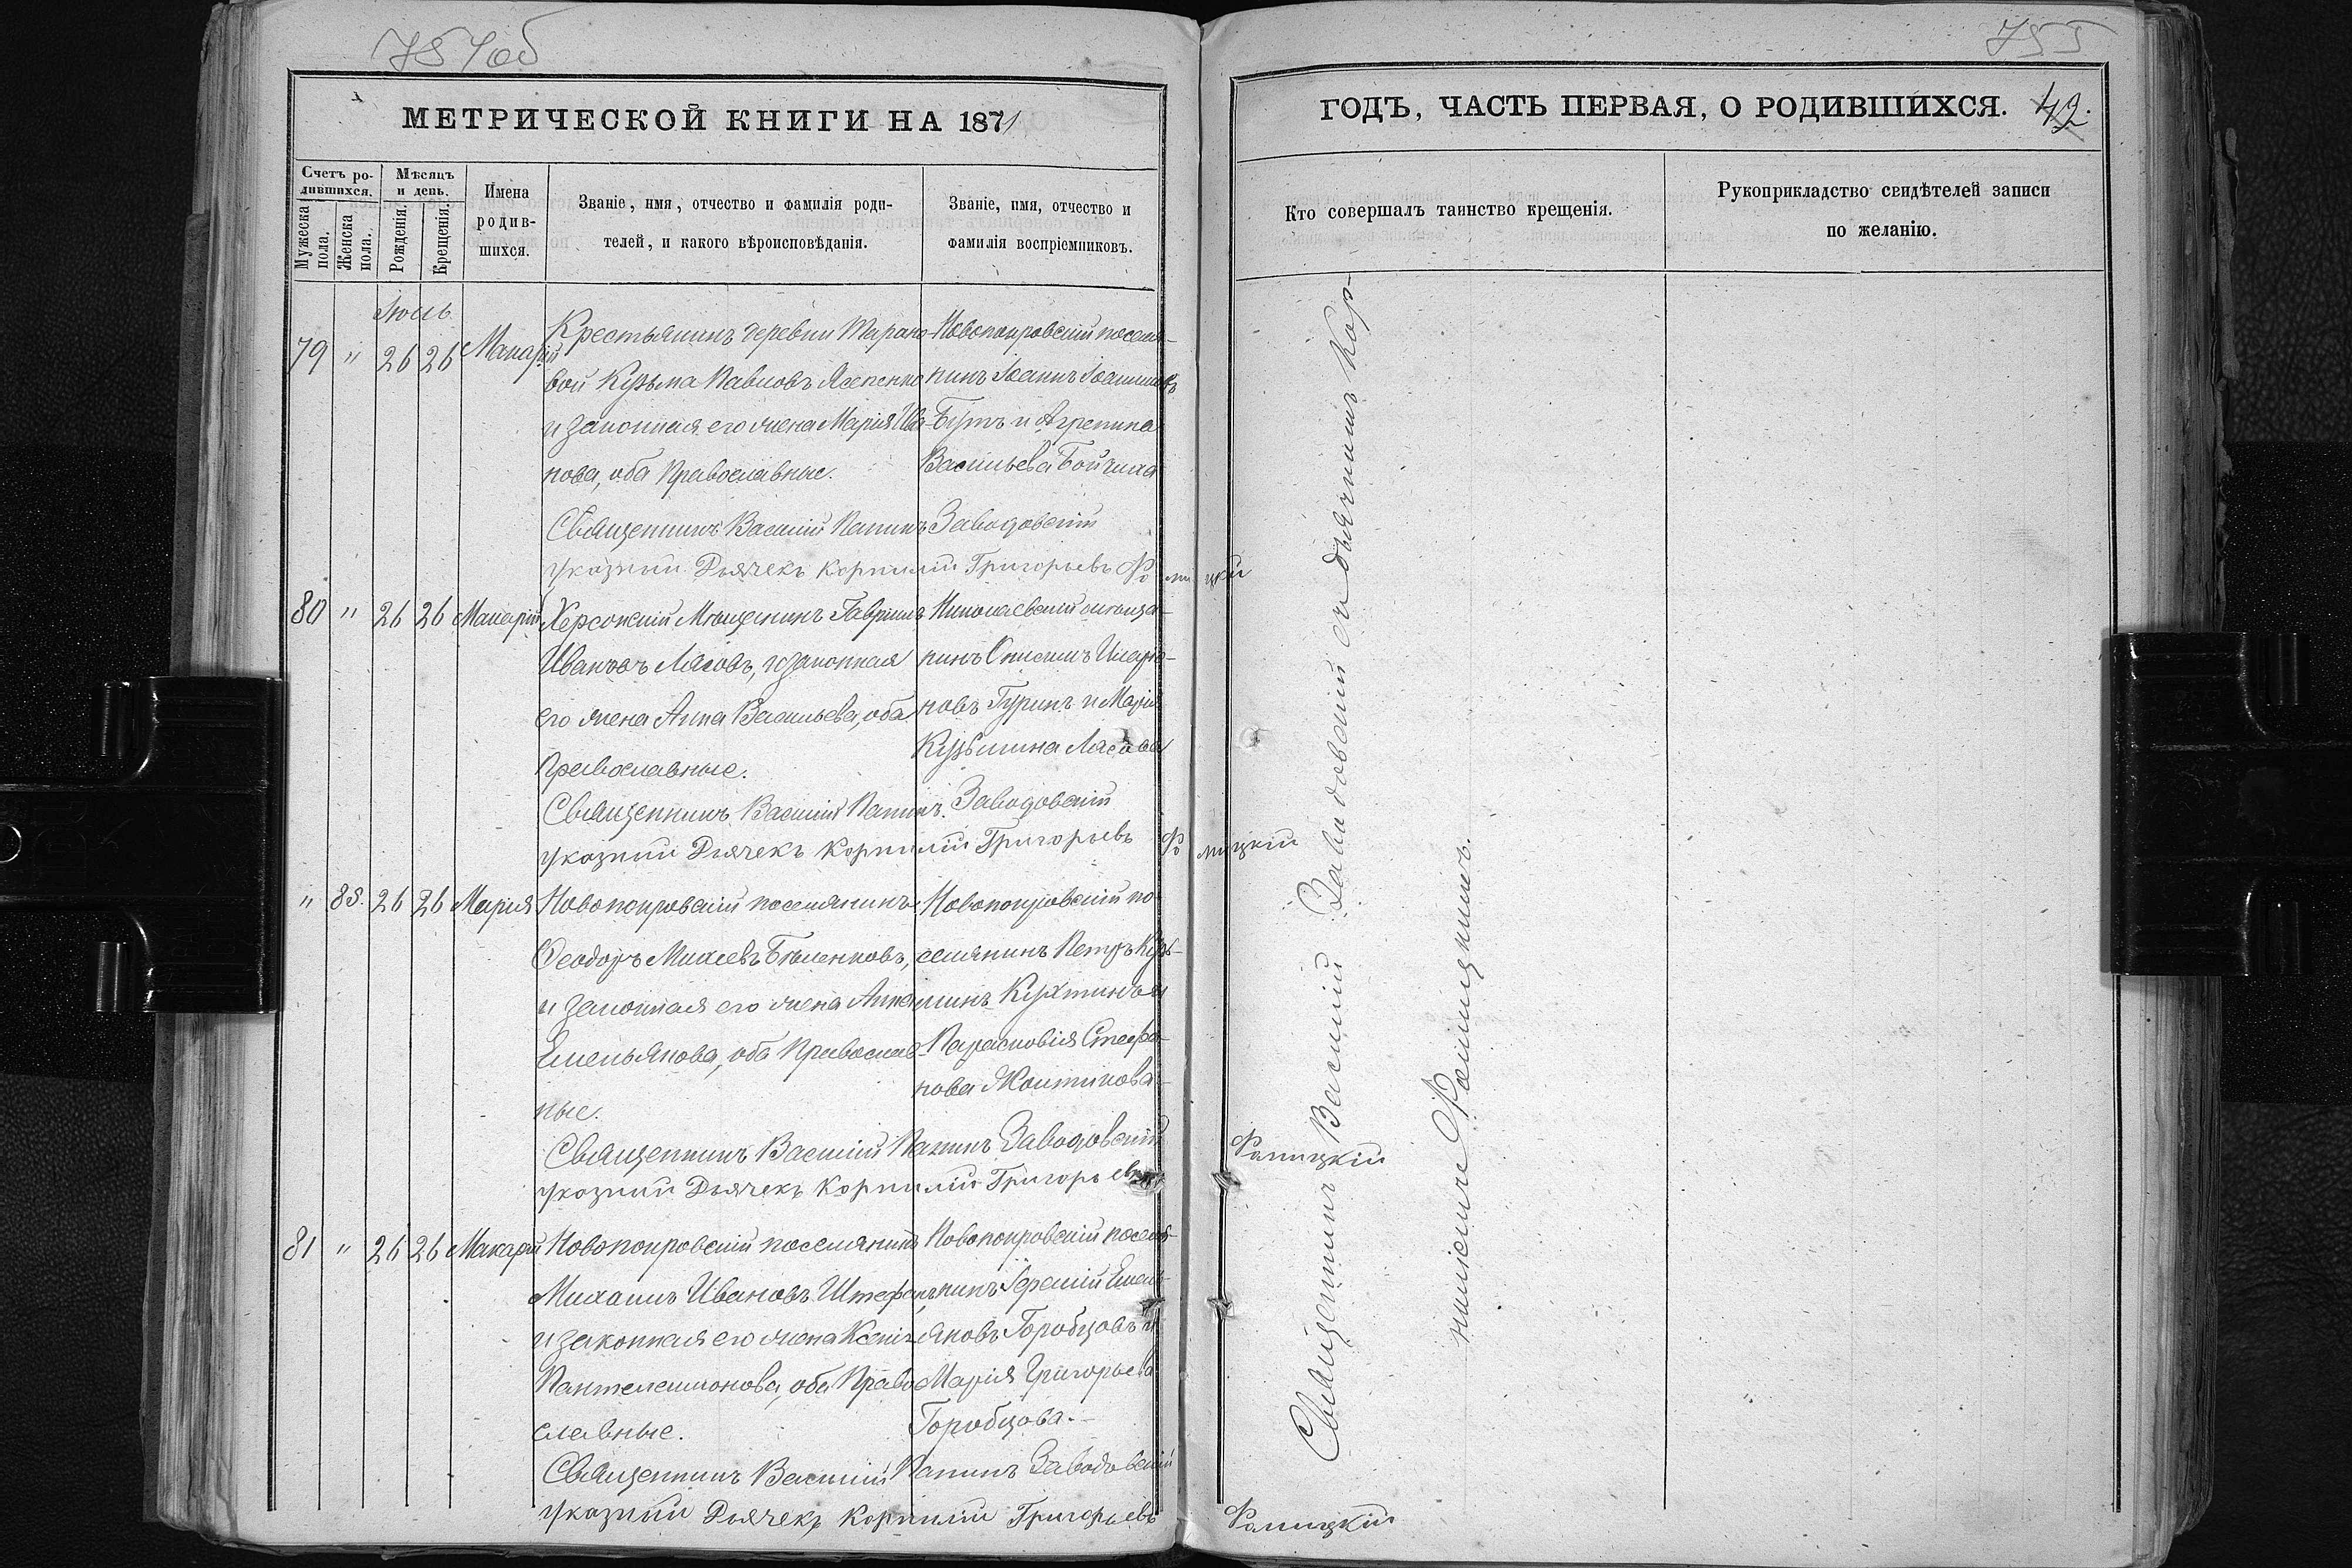 754об
МЕТРИЧЕСКОЙ КНИГИ НА 1871
Счетъ ро-
дившихся.
Мужеска пола.
Женска пола.
Мѣсяцъ
и день.
Рожденія.
Крещенія.
Имена
родив-
шихся.
Званіе, имя, отчество и фамилія роди-
телей, и какого вѣроисповѣданія.
Званіе, имя, отчество и
фамилія воспріемниковъ.
79 " 26 26 Макарій
Крестьянинъ деревни Тарано-
вой Кузьма Павловъ
и законная его жена Марія Ива-
нова, оба Православные.
Новопокровскій поселя-
нинъ Іоаннъ Іоанновъ
Бутъ и Агрепина
Васильева
Священникъ Василій Заводовскій
указный Дьячекъ Корнилій Григорьевъ
80 " 26 26 Макарій
Херсонскій Мѣщанинъ Гавріилъ
Ивановъ Лясовъ, и законная
его жена Анна Васильева, оба
Православные.
Николаевскій мѣща-
нинъ
новъ Гуринъ и Марія
Кузьмина Лясова
Священникъ Василій Заводовскій
указный Дьячекъ Корнилій Григорьевъ
" 85. 26 26 Марія
Новопокровскій поселянинъ
Ѳеодоръ Михеевъ Бѣленковъ,
и законная его жена Анна
Емельянова, оба Православ-
ные.
Новопокровскій по-
селянинъ Петръ Кузь-
минъ Кухтинъ и
Парасковія Стефа-
нова
Священникъ Василій Заводовскій
указный Дьячекъ Корнилій Григорьевъ
81 " 26 26 Макарій
Новопокровскій поселянинъ
Михаилъ Ивановъ Штефанъ,
и законная его жена Ксенія
Пантелеимонова, оба Право-
славные.
Новопокровскій поселя-
нинъ Емель-
яновъ Горобцовъ и
Марія Григорьева
Горобцова.
Священникъ Василій Заводовскій
указный Дьячекъ Корнилій Григорьевъ
755
ГОДЪ, ЧАСТЬ ПЕРВАЯ, О РОДИВШИХСЯ. 42.
Кто совершалъ таинство крещенія.
Рукоприкладство свидѣтелей записи
по желанію.
Священникъ Василій Заводовскій съ дьячкомъ Кор-
ниліемъ